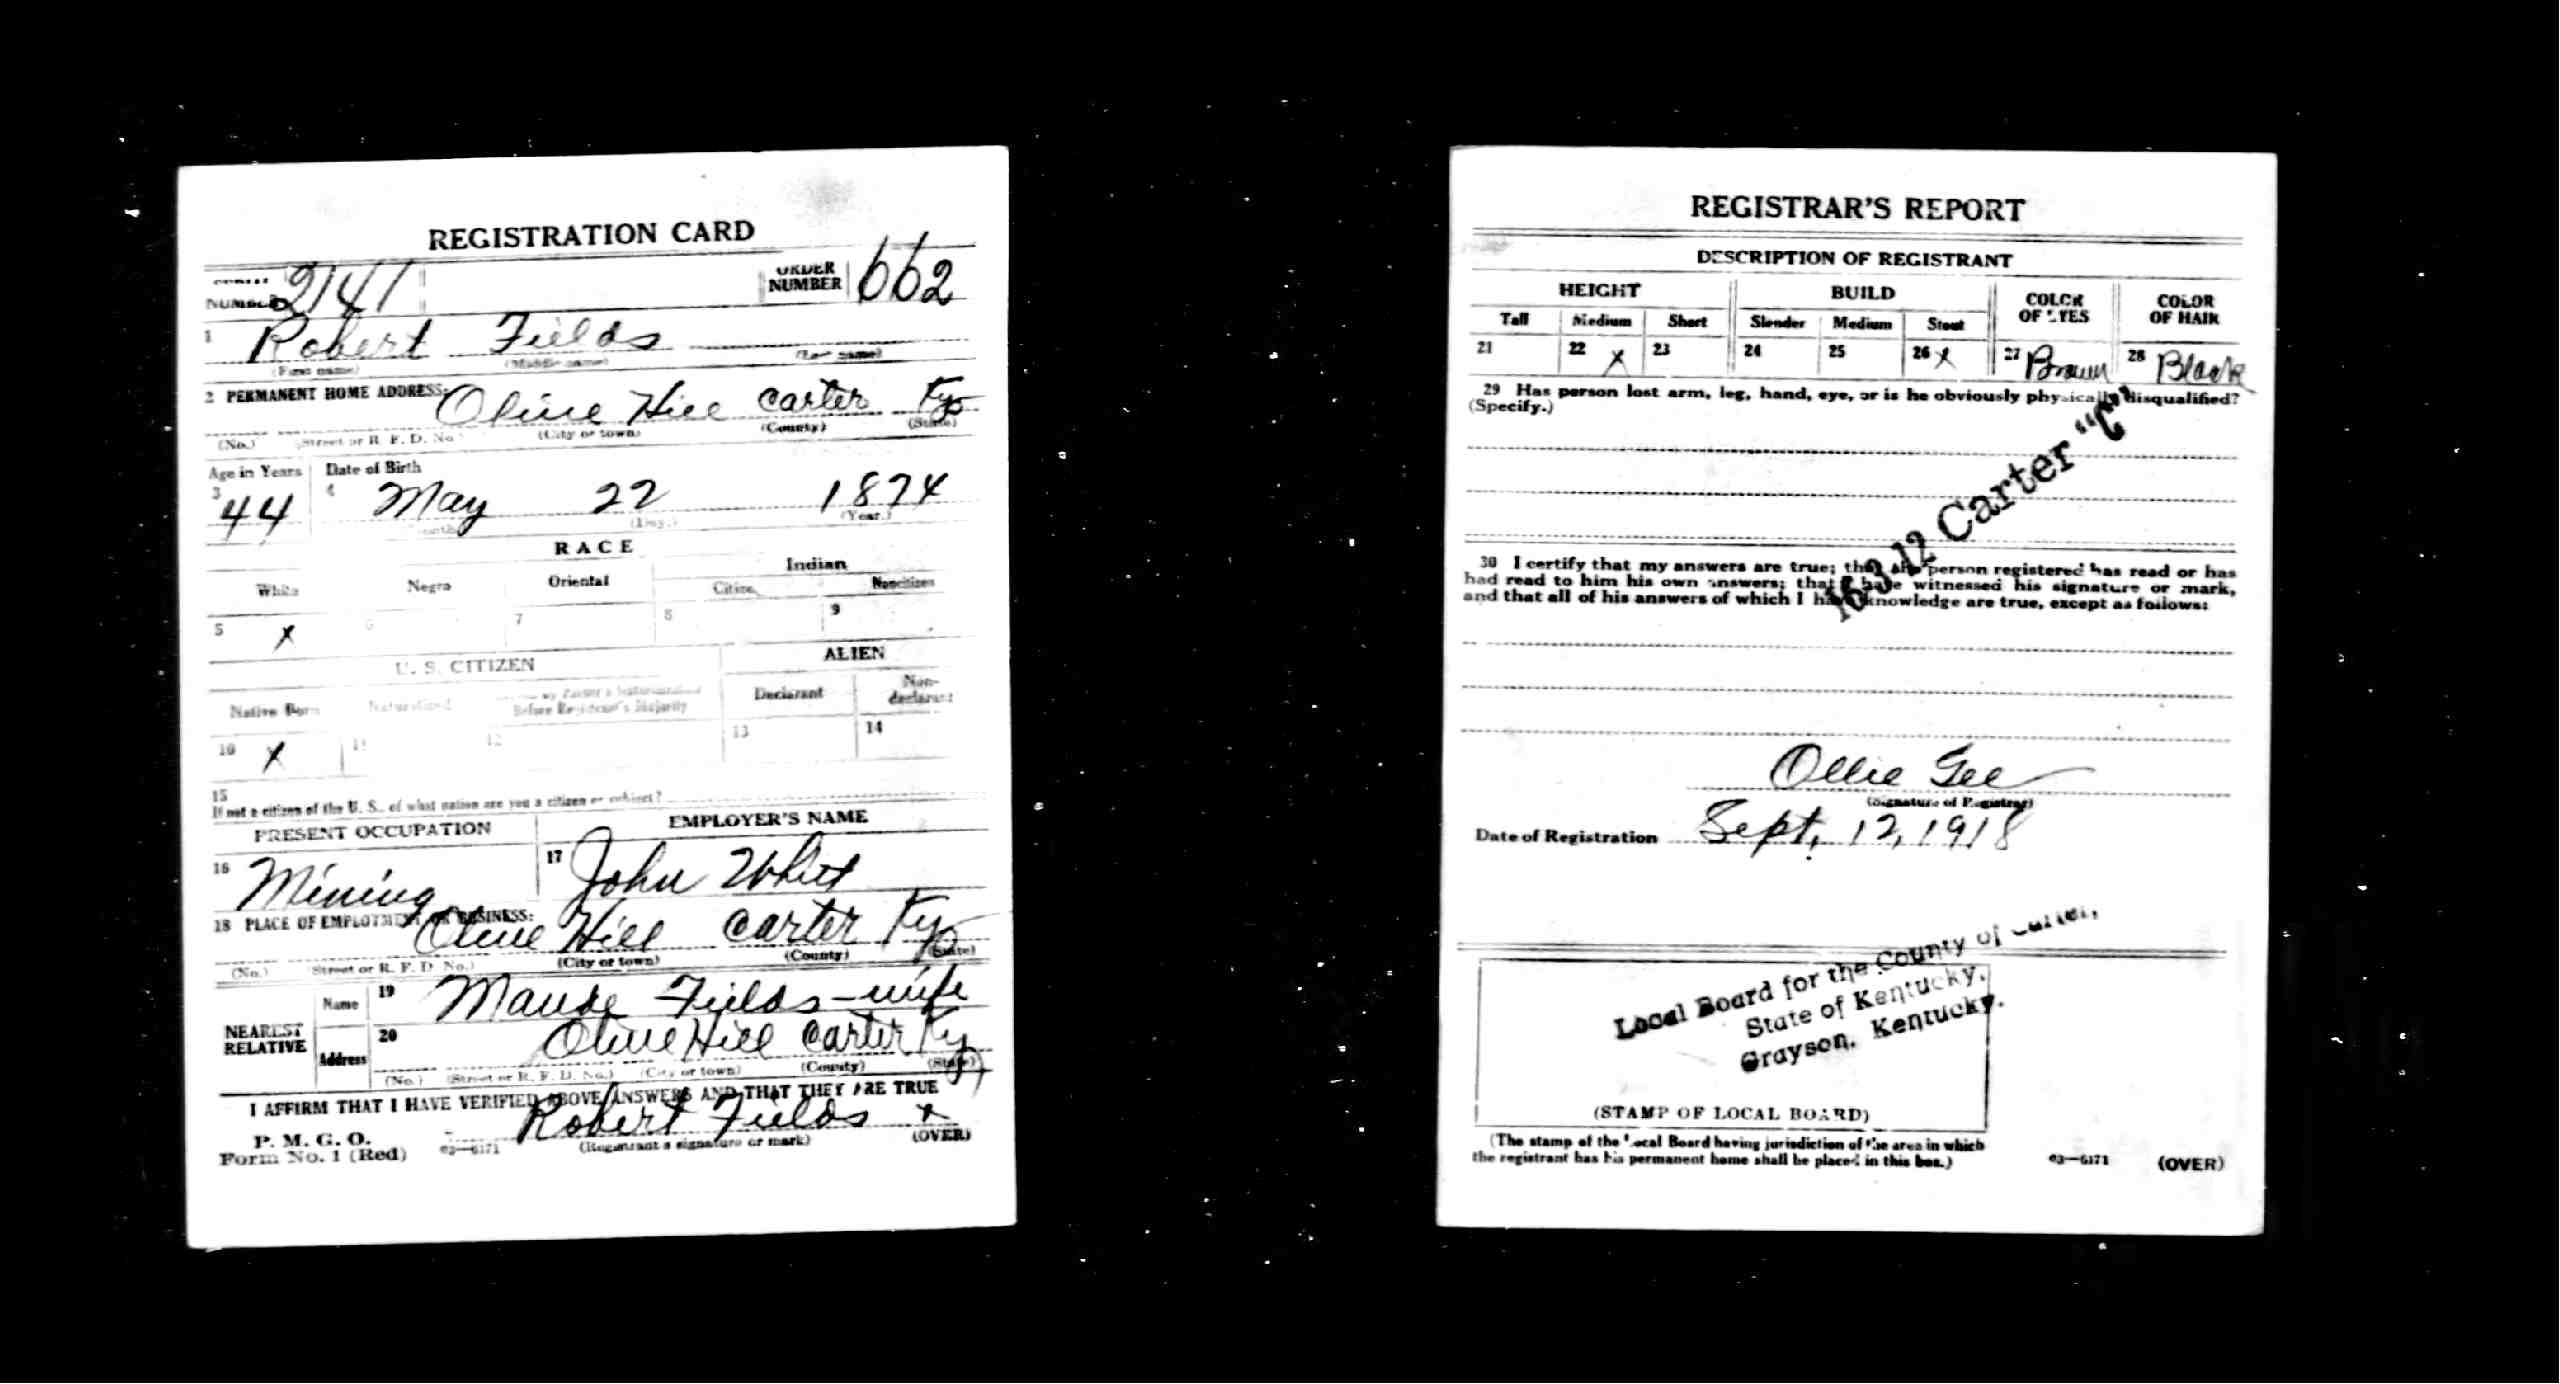 REGISTRATION CARD
NUMBER 2141 ORDER NUMBER 662
1 Robert Fields
(First name) (Middle name) (Last name)
2 PERMANENT HOME ADDRESS: Olive Hill Carter Ky
(No.) (Street or R. F. D. No.) (City or town) (County) (State)
Age in Years Date of Birth
3 44 4 May 22 1874
(Day.) (Year.)
RACE
White Negro Oriental Indian
Citizen Noncitizen
5 X 6 7 8 9
U. S. CITIZEN ALIEN
Native Born Naturalized Before Registrant's Majority Declarant Non-declarant
10 X 11 12 13 14
15
If not a citizen of the U. S., of what nation are you a citizen or subject?
PRESENT OCCUPATION EMPLOYER'S NAME
16 Mining 17 John Whitt
18 PLACE OF EMPLOYMENT OR BUSINESS: Olive Hill Carter Ky
(No.) (Street or R. F. D. No.) (City or town) (County) (State)
NEAREST RELATIVE Name 19 Maude Fields - wife
Address 20 Olive Hill Carter Ky
(No.) (Street or R. F. D. No.) (City or town) (County) (State)
I AFFIRM THAT I HAVE VERIFIED ABOVE ANSWERS AND THAT THEY ARE TRUE
P. M. G. O.
Form No. 1 (Red) 03—6171 Robert Fields x
(Registrant's signature or mark) (OVER)
REGISTRAR'S REPORT
DESCRIPTION OF REGISTRANT
HEIGHT BUILD COLOR OF EYES COLOR OF HAIR
Tall Medium Short Slender Medium Stout
21 22 X 23 24 25 26 X 27 Brown 28 Black
29 Has person lost arm, leg, hand, eye, or is he obviously physically disqualified?
(Specify.)
16-3-12 Carter "C"
30 I certify that my answers are true; that the person registered has read or has
had read to him his own answers; that I have witnessed his signature or mark,
and that all of his answers of which I have knowledge are true, except as follows:
Ollie Gee
(Signature of Registrar)
Date of Registration Sept, 12, 1918
Local Board for the County of Carter,
State of Kentucky,
Grayson, Kentucky.
(STAMP OF LOCAL BOARD)
(The stamp of the Local Board having jurisdiction of the area in which
the registrant has his permanent home shall be placed in this box.)
03—6171 (OVER)